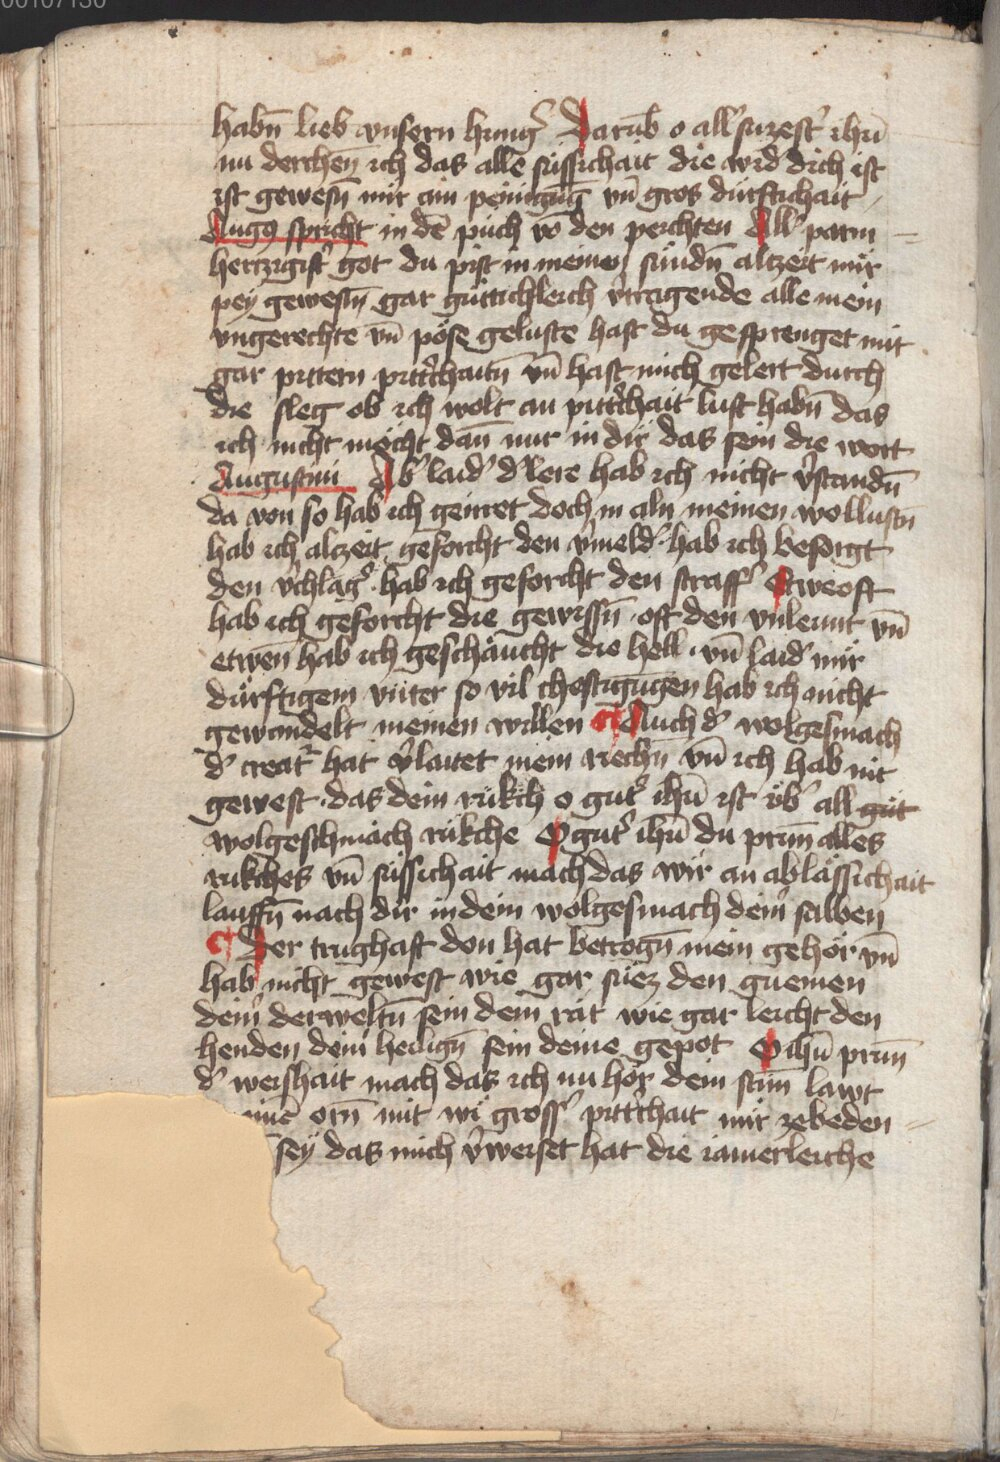 00107130
habn̄ lieb vnsern hung̾ Darūb o all̾ suzest̾ ihū
nu derchen̄ ich das alle süssichait die wid̾ dich ist
ist gewesn̄ mir ain peinigūg vn̄ gros dürftichait
Aug9 spricht in dē puch vō den peichten All̾ parm
hertzigist̾ got du pist in meinen sündn̄ altzeit mir
pey gewesn̄ gar güttichleich v̾tragende alle mein
vngerechte vn̄ pöse geluste hast du gesprenget mit
gar pittern pitt̾chaitn̄ vn̄ hast mich gelert durch
die sleg ob ich wolt an pitt̾chait lust habn̄ das
ich nicht möcht dan̄ nur in dir das sein die wort
Augustini Ab̾ laid̾ d̾ lere hab ich nicht v̾standn̄
da von so hab ich geirret doch in aln meinen wollustn̄
hab ich altzeit geforcht den v̾meld̾ hab ich besorgt
den v̾chlag̾ hab ich geforcht den straff̾ Etweoft
hab ich geforcht die gewissn̄ oft den vnleunt vn̄
etwen̄ hab ich geschäucht die hell vn̄ laid̾ mir
dürftigem vnter so vil chestigūgen hab ich nicht
gewandelt meinen willen Auch d̾ wolgesmach
d̾ creat̾ hat v̾laitet mein riechn̄ vn̄ ich hab nit
gewest das dein rükch o gut̾ ihū ist vb̾ all gut
wolgeschmäch rükche O gut̾ ihū du prun̄ alles
rukches vn̄ süssichait mach das wir an ablässichait
lauffn̄ nach dir in dein wolgesmach dein̾ salben
Der trughaft don hat betrogn̄ mein gehör vn̄
hab nicht gewest wie gar süez den guemen
dein̾ derweltn̄ sein dein rät wie gar leicht den
henden dein̾ heilign̄ sein deine gepot O ihū prun̄
d̾ weishait mach das ich nu hör dein stim̄ lawt
orn̄ mit wi gross̾ pitt̾chait mir zebeden
sey das mich v̾weiset hat die iamerleiche